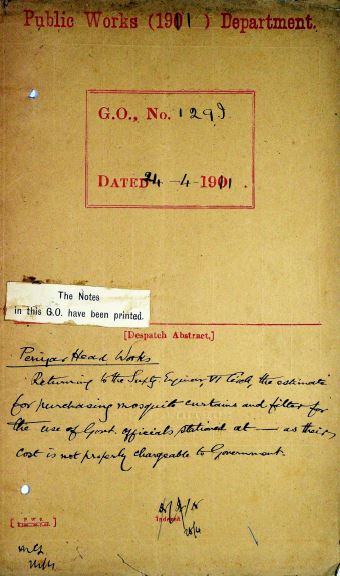 Public Works (1911) Department.
G.O., No. 129
DATED 24-4-1911.
The Notes
in this G.O. have been printed.
[Despatch Abstract,]
Periyar Head Works
Returning to the Supty Engineer VI Circle the estimate
for purchasing mosquito curtains and filter for
the use of Govt. officials stationed at — as their
cost is not properly chargeable to Government.
Indexed